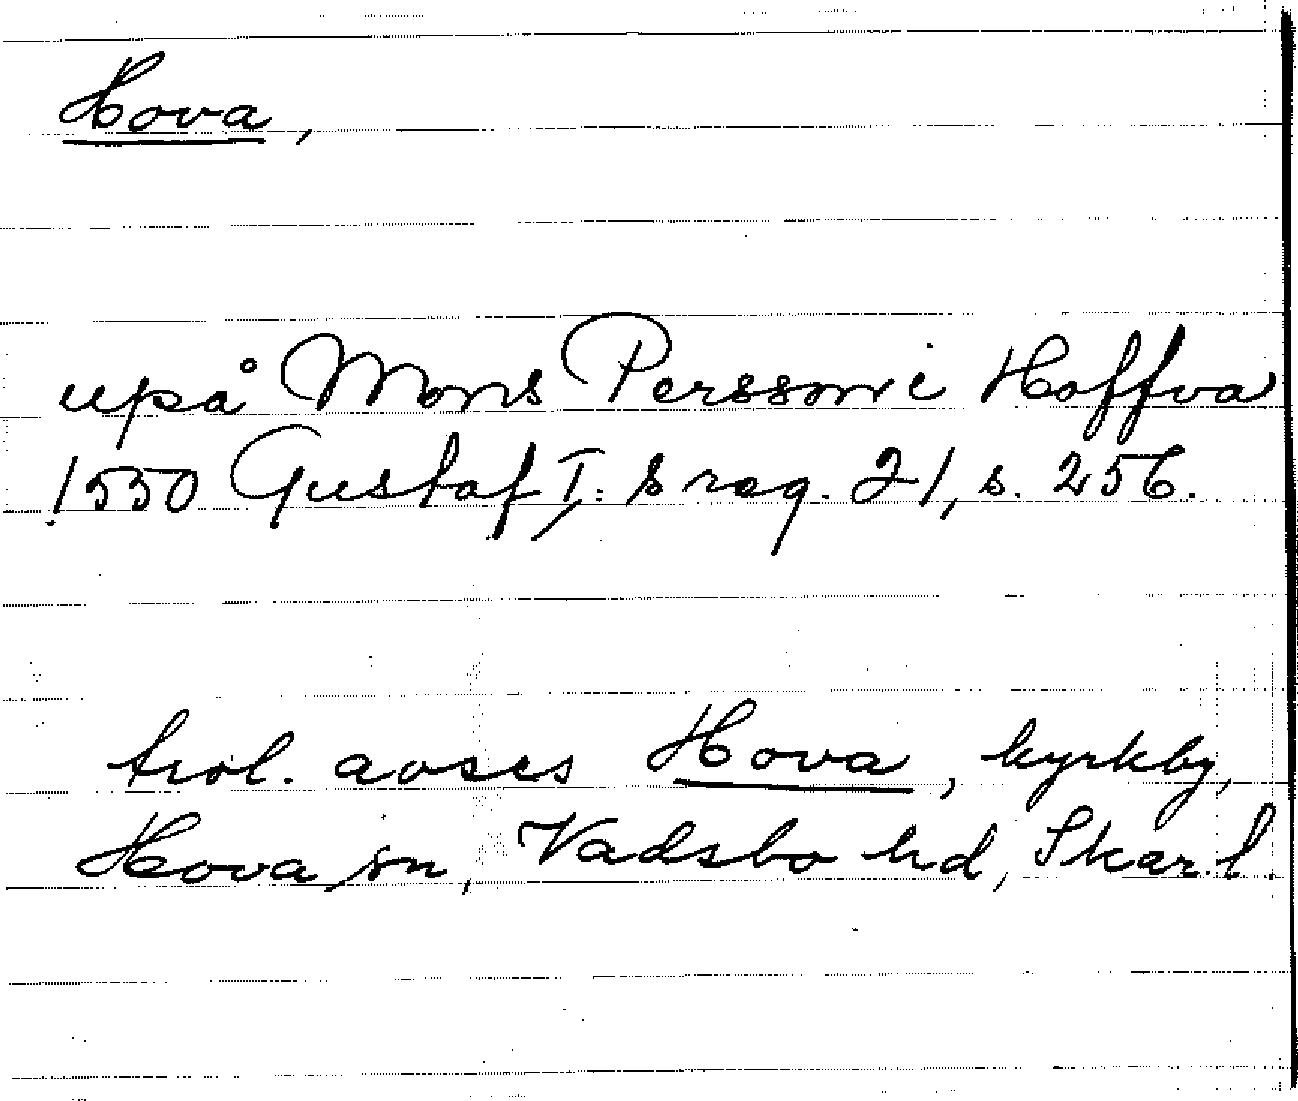 Hova,
upå Mons Persson i Hoffva
1550 Gustaf I:s reg. 21, s. 256.
trol. avses Hova, kyrkby,
Hova sn, Vadsbo hd, Skar.l.